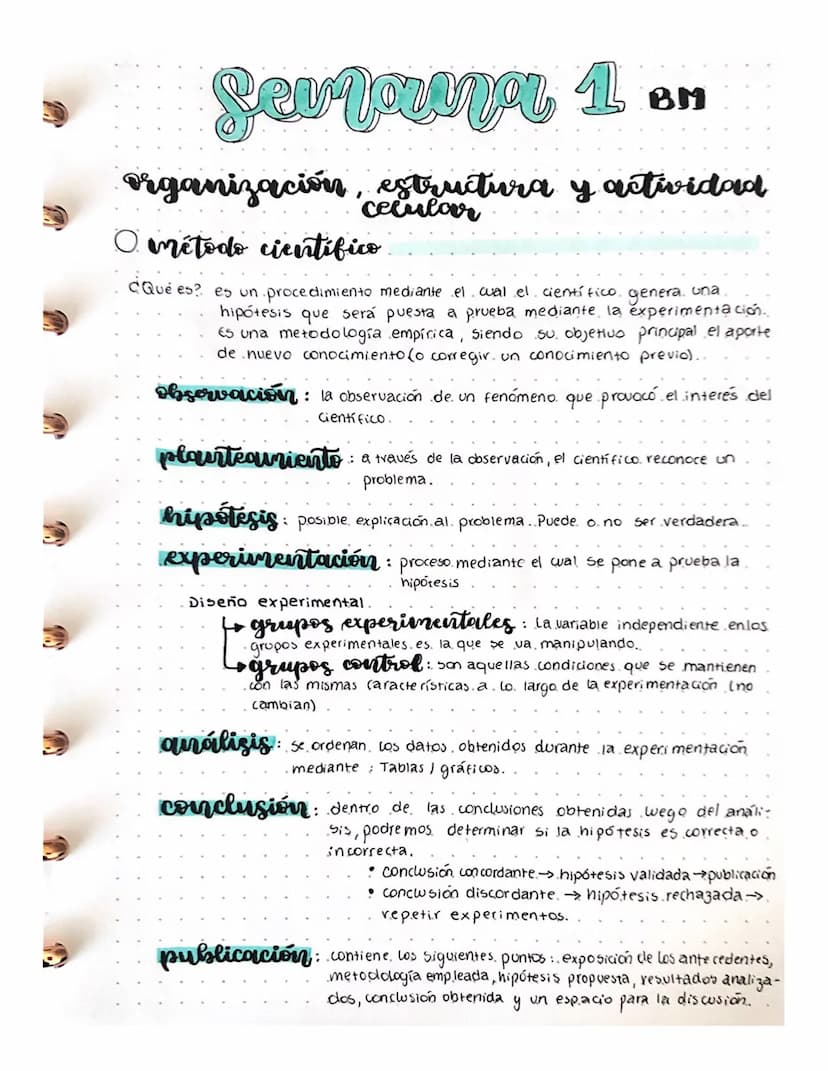 Semana 1 BM
organización, estructura y actividad
celular
método científico
¿Qué es? es un procedimiento mediante el cual el científico genera una
hipótesis que será puesta a prueba mediante la experimentación.
Es una metodología empírica, siendo su objetivo principal el aporte
de nuevo conocimiento (o corregir un conocimiento previo).
observación: la observación de un fenómeno que provocó el interés del
científico.
planteamiento: a través de la observación, el científico reconoce un
problema.
hipótesis: posible explicación al problema. Puede o no ser verdadera.
experimentación: proceso mediante el cual se pone a prueba la
hipótesis
Diseño experimental
↳ grupos experimentales: La variable independiente en los
grupos experimentales es la que se va manipulando.
↳ grupos control: son aquellas condiciones que se mantienen
con las mismas características a lo largo de la experimentación (no
cambian)
análisis: se ordenan los datos obtenidos durante la experimentación
mediante: Tablas / gráficos.
conclusión: dentro de las conclusiones obtenidas luego del análi-
sis, podremos determinar si la hipótesis es correcta o
incorrecta.
• conclusión concordante → hipótesis validada → publicación
• conclusión discordante → hipótesis rechazada →
repetir experimentos.
publicación: contiene los siguientes puntos: exposición de los antecedentes,
metodología empleada, hipótesis propuesta, resultados analiza-
dos, conclusión obtenida y un espacio para la discusión.